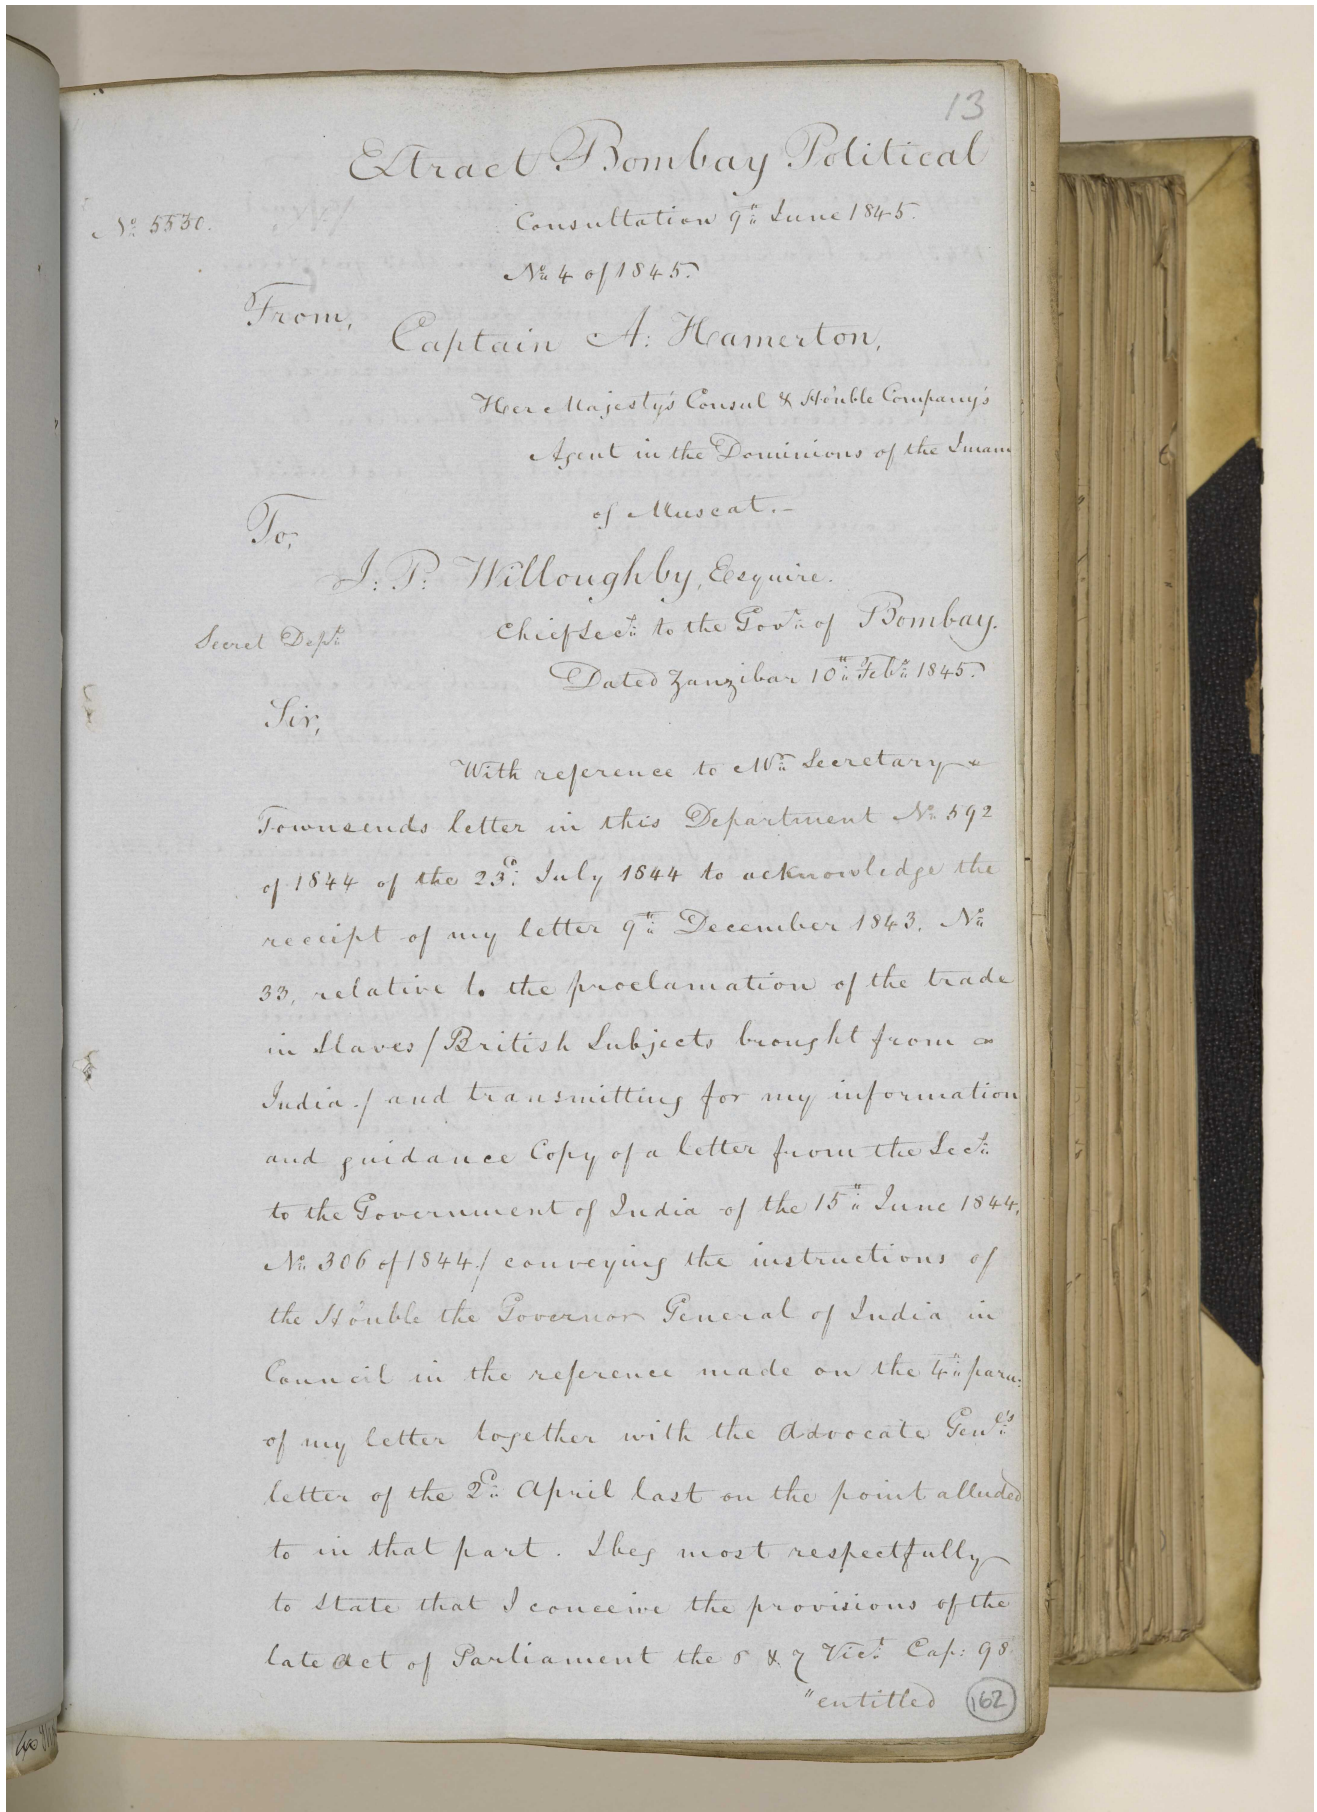 13
Extract Bombay Political
Consultation 9th June 1845.
No. 5530.
No. 4 of 1845.
From,
Captain A: Hamerton,
Her Majesty's Consul & Hon'ble Company's
Agent in the Dominions of the Imam
of Muscat.-
To,
J: P: Willoughby, Esquire.
Chief Sect. to the Govt. of Bombay.
Secret Dept.
Dated Zanzibar 10th Feby. 1845.
Sir,
With reference to Mr. Secretary
Townsends letter in this Department No. 592
of 1844 of the 23d. July 1844 to acknowledge the
receipt of my letter 9th December 1843. No.
33, relative to the proclamation of the trade
in Slaves / British Subjects brought from
India. / and transmitting for my information
and guidance Copy of a letter from the Sect.
to the Government of India of the 15th June 1844,
No. 306 of 1844. / conveying the instructions of
the Hon'ble the Governor General of India in
Council in the reference made on the 4th para:
of my letter together with the Advocate Genl's
letter of the 2d. April last on the point alluded
to in that part. I beg most respectfully
to state that I conceive the provisions of the
late Act of Parliament the 6 & 7 Vict. Cap: 98.
"entitled
162